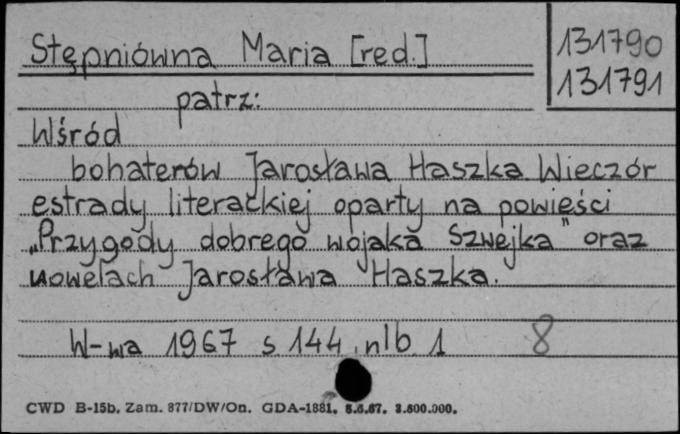 Stępniówna Maria [red.]
131790
131791
patrz:
Wśród
bohaterów Jarosława Haszka. Wieczór
estrady literackiej oparty na powieści
„Przygody dobrego wojaka Szwejka" oraz
nowelach Jarosława Haszka.
W-wa 1967 s 144, nlb. 1
8
CWD B-15b. Zam. 877/DW/On. GDA-1881. 5.6.67. 3.500.000.